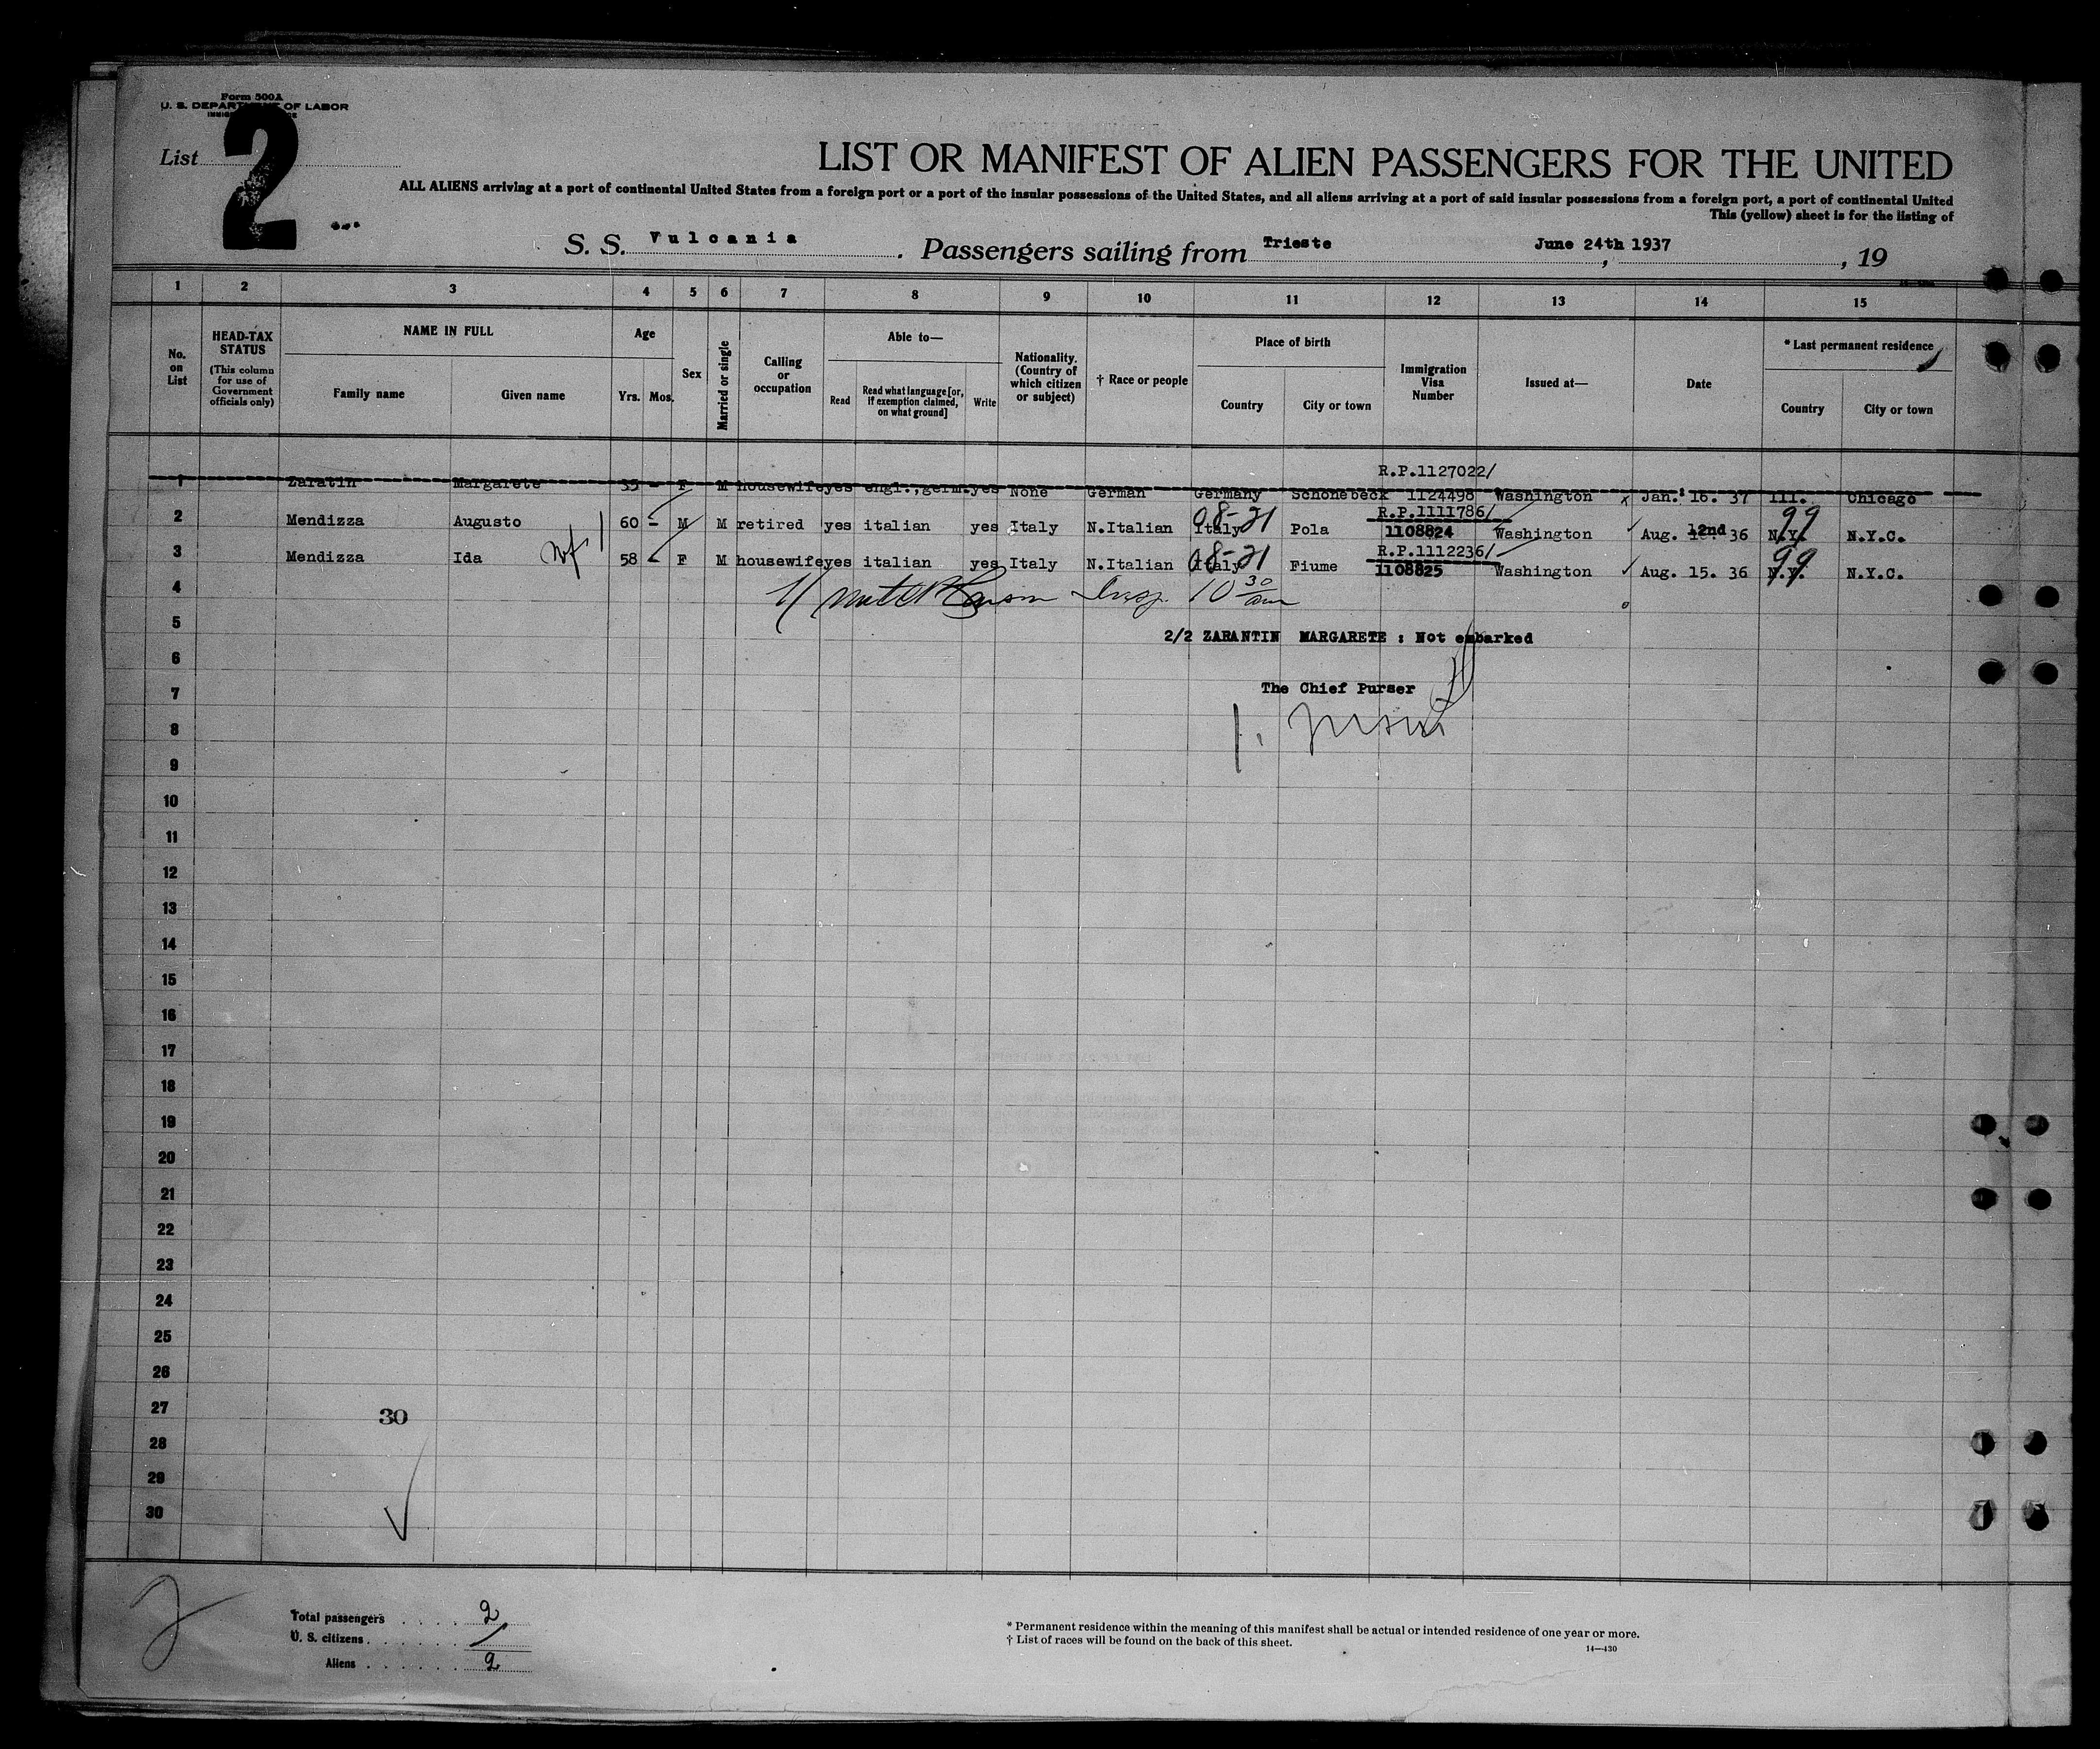 Form 500A
U. S. DEPARTMENT OF LABOR
List 2
LIST OR MANIFEST OF ALIEN PASSENGERS FOR THE UNITED
ALL ALIENS arriving at a port of continental United States from a foreign port or a port of the insular possessions of the United States, and all aliens arriving at a port of said insular possessions from a foreign port, a port of continental United
This (yellow) sheet is for the listing of
S. S. Vulcania. Passengers sailing from Trieste June 24th 1937, 19
1 2 3 4 5 6 7 8 9 10 11 12 13 14 15
No. on List
HEAD-TAX STATUS (This column for use of Government officials only)
NAME IN FULL
Family name Given name
Age
Yrs. Mos.
Sex
Married or single
Calling or occupation
Able to—
Read Read what language [or, if exemption claimed, on what ground] Write
Nationality. (Country of which citizen or subject)
† Race or people
Place of birth
Country City or town
Immigration Visa Number
Issued at—
Date
* Last permanent residence
Country City or town
R.P.1127022/
1 Zaratin Margarete 35 - F M housewife yes engl.,germ. yes None German Germany Schonebeck 1124498 Washington Jan. 16. 37 Ill. Chicago
R.P.1111786/
2 Mendizza Augusto 60 - M M retired yes italian yes Italy N.Italian Italy 08-21 Pola 1108824 Washington Aug. 12nd 36 N.Y. 99 N.Y.C.
R.P.1112236/
3 Mendizza Ida 58 - F M housewife yes italian yes Italy N.Italian Italy 08-21 Fiume 1108825 Washington Aug. 15. 36 N.Y. 99 N.Y.C.
4 Insp. 10 30 am
5 2/2 ZARANTIN MARGARETE : Not embarked
6
7 The Chief Purser
8
9
10
11
12
13
14
15
16
17
18
19
20
21
22
23
24
25
26
27 30
28
29
30
2
Total passengers . . . . . 2
U. S. citizens . . . . . . . /
Aliens . . . . . . . 2
* Permanent residence within the meaning of this manifest shall be actual or intended residence of one year or more.
† List of races will be found on the back of this sheet.
14—430